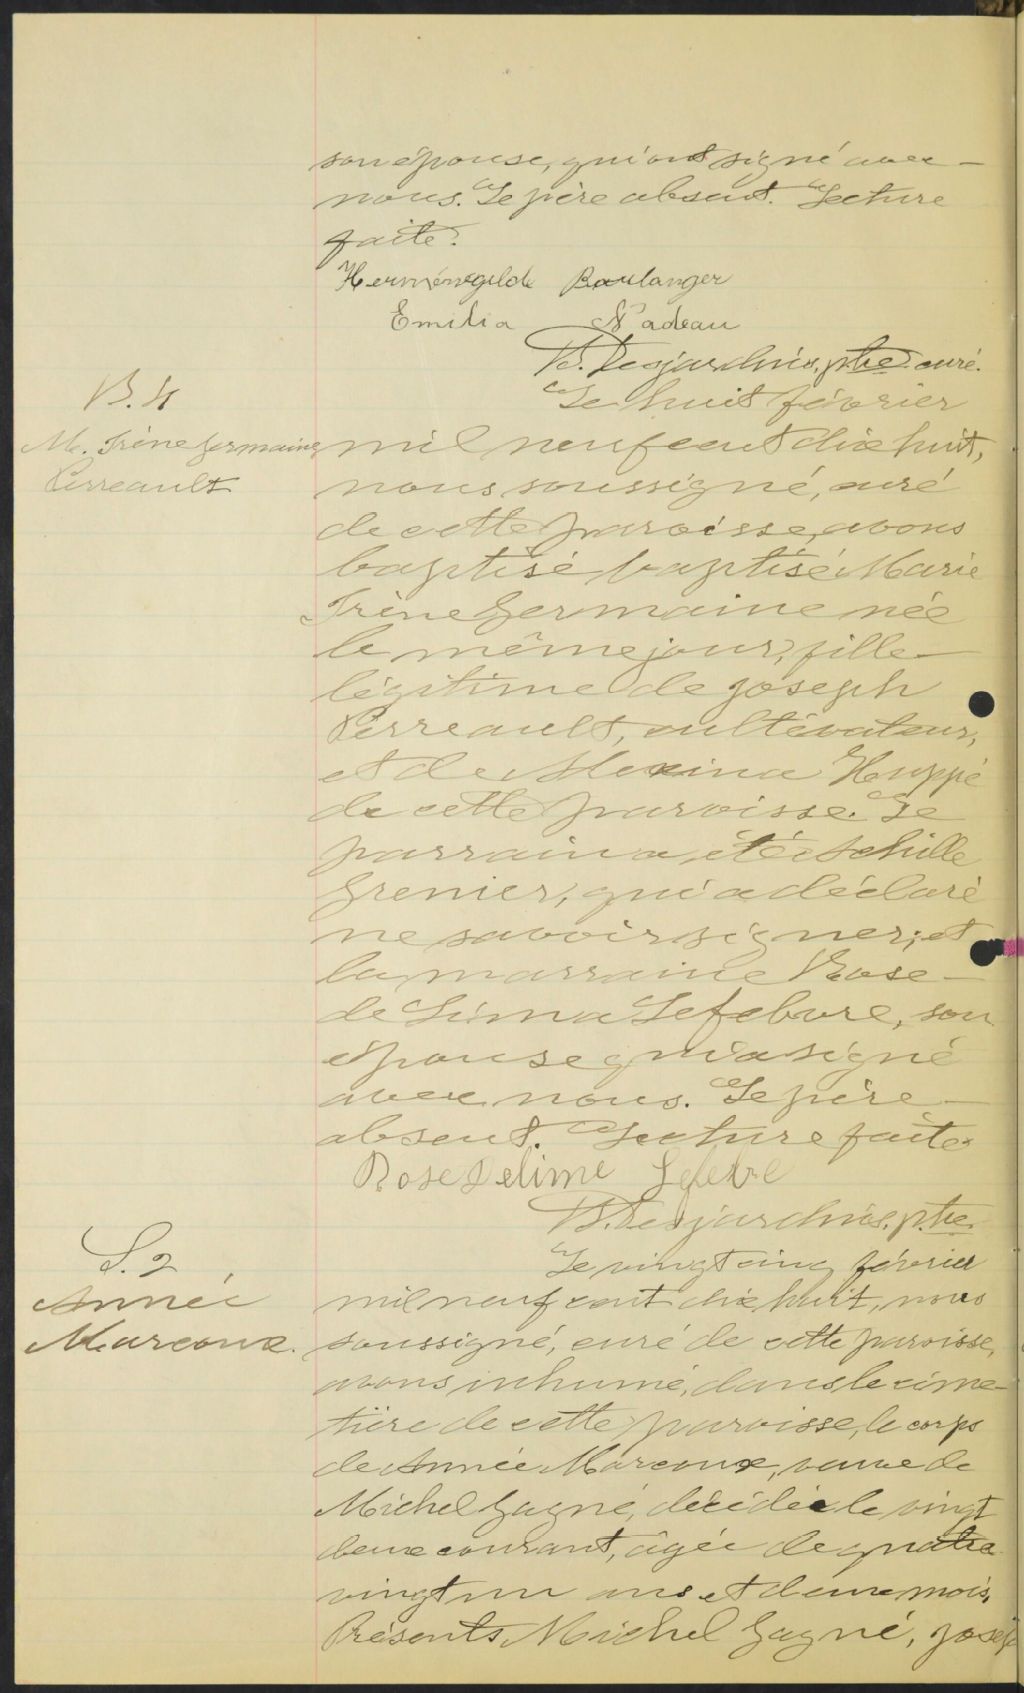 son épouse, qui ont signé avec
nous. Le père absent. Lecture
faite.
Herménégilde Boulanger
Emilia Nadeau
B. Desjardins, ptre curé.
B. 4
M. Irène Germaine
Perreault
Le huit février
mil neuf cent dix huit,
nous soussigné, curé
de cette paroisse, avons
baptisé baptisé Marie
Irène Germaine née
le même jour, fille
légitime de Joseph
Perreault, cultivateur,
et de Alexina Huppé
de cette paroisse. Le
parrain a été Achille
Grenier, qui a déclaré
ne savoir signer; et
la marraine Rose
de Lima Lefebvre, son
épouse qui a signé
avec nous. Le père
absent. Lecture faite.
Rose Delime Lefebre
B. Desjardins, ptre
S. 2
Année
Marcoux.
Le vingt cinq février
mil neuf cent dix huit, nous
soussigné, curé de cette paroisse,
avons inhumé, dans le cime-
tière de cette paroisse, le corps
de Année Marcoux, veuve de
Michel Gagné, décédée le vingt
deux courant, âgée de quatre
vingt un ans et deux mois.
Présents, Michel Gagné, Joseph